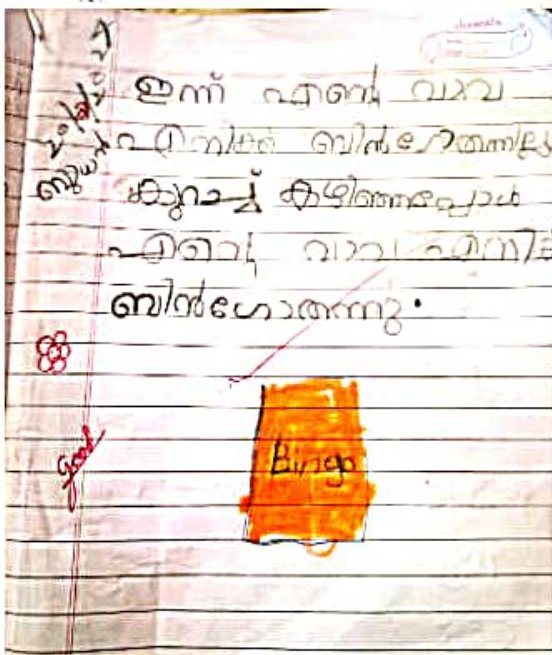 ഇന്ന് എന്റെ വാവ
എനിക്ക് ബിൻഗോതന്നില്ല
കുറച്ച് കഴിഞ്ഞപ്പോൾ
എന്റെ വാവ എനിക്
ബിൻഗോതന്നു.
ബുധൻ
good
Bingo